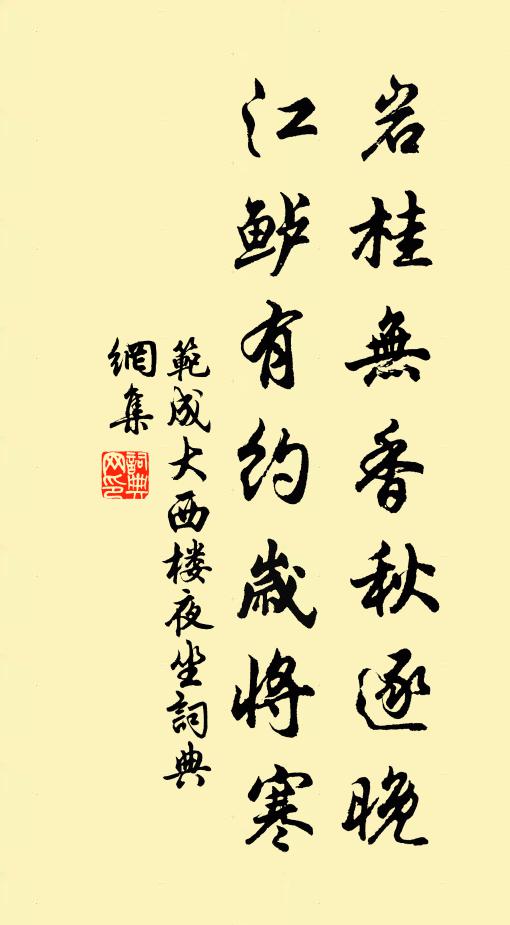 岩桂無香秋逐晚
江鲈有約歲將寒
範成大西楼夜坐詞典
網集
詞典网印